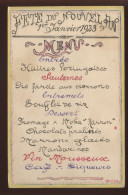 FÊTE DU NOUVEL AN
1er Janvier 1923
MENU
Entrée
Huîtres Portugaises
Sauternes
aux marrons
Entremets
Soufflé de riz
Dessert
Fromage
Chocolats pralinés
Marrons glacés
Mandarines
Vin Mousseux
Café - Liqueurs